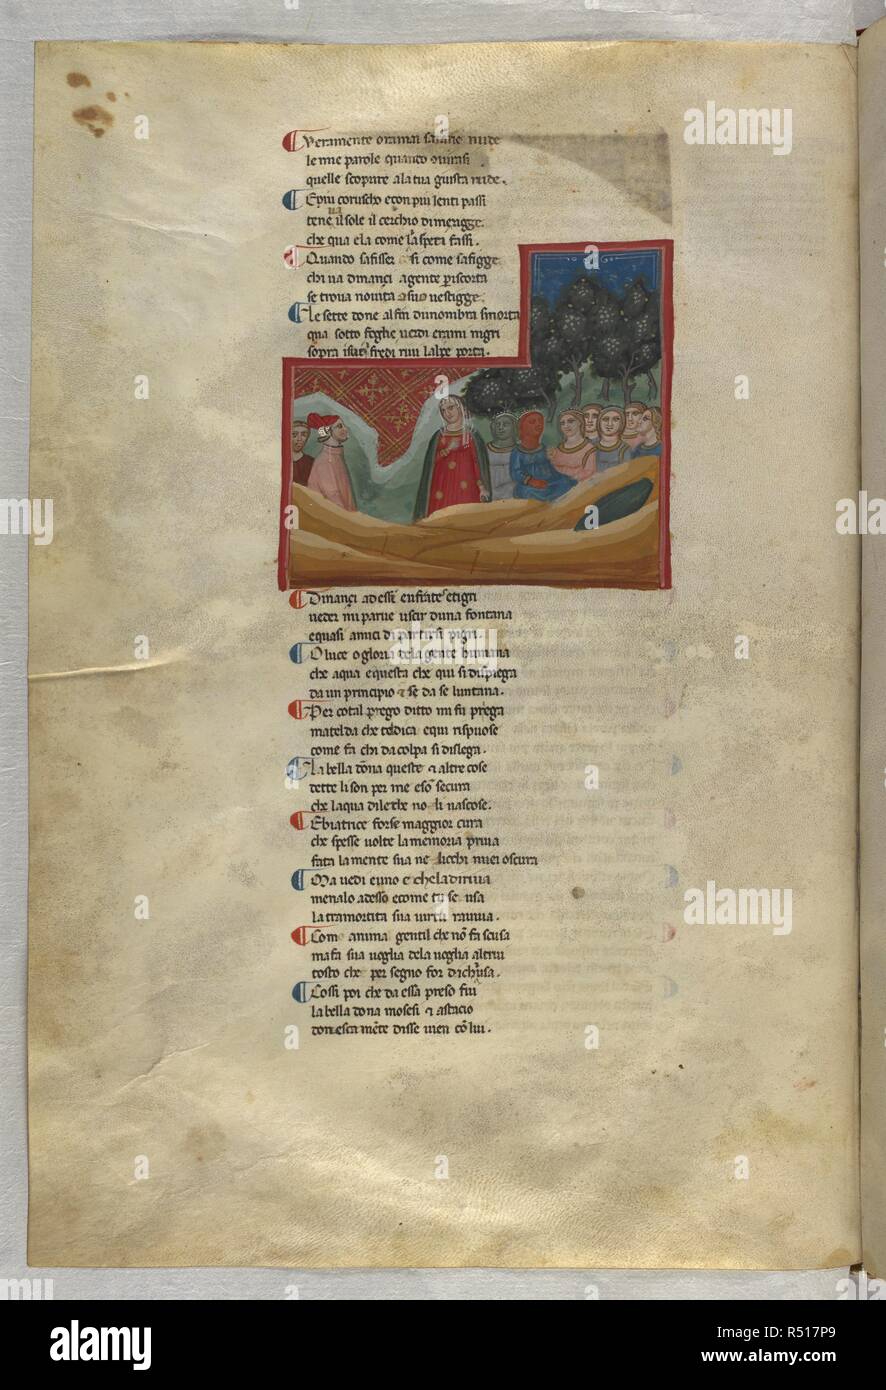 Veramente oramai saranno nude
le mie parole quanto
quelle scoprire ala tua guista rude.
E piu corusho e con piu lenti passi
tene il sole il cerchio di merigge.
che qua e la come laspeti fassi.
Quando safisser si come safigge
chi na dinançi a gente p iscorta
se trova novita o suo vestigge.
Le sette done al fin dunombra smorta
qua sotto foghe verdi e rami nigri
sopra freddi rivi lalpe porta.
Dinançi ad essi eufrate e tigri
veder mi parue uscir duna fontana
e quasi amici dipartirsi pigri.
O luce o gloria dela gente humana
che aqua e questa che qui si dispiega
da un principio et se da se luntana.
Per cotal prego ditto mi fu prega
matelda che tel dica e qui rispuose
come fa chi da colpa si dislega.
La bella dona queste et altre cose
dette li son per me e son secura
che laqua di lethe no li nascose.
E biatrice forse maggior cura
che spesse uolte la memoria priua
fata la mente sua ne li occhi oscura
Ma uedi euno e che la diriua
menalo adesso e come tu se usa
la tramortita sua uirtu rauiua.
Come anima gentil che no fa scusa
ma fa sua uoglia dela uoglia altrui
tosto che per segno for dichiusa.
Cossi poi che da essa preso fui
la bella dona mosesi et a stacio
donesca mete disse uien co lui.
alamy
Image ID: R517P9
www.alamy.com